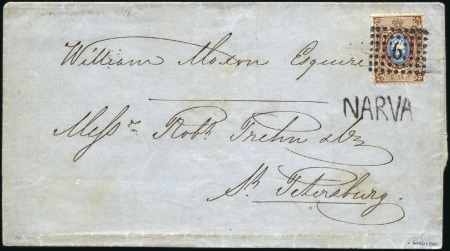 William Moxon Esquire
6
NARVA
Messrs Robt Trehn & Co
St Petersburg.